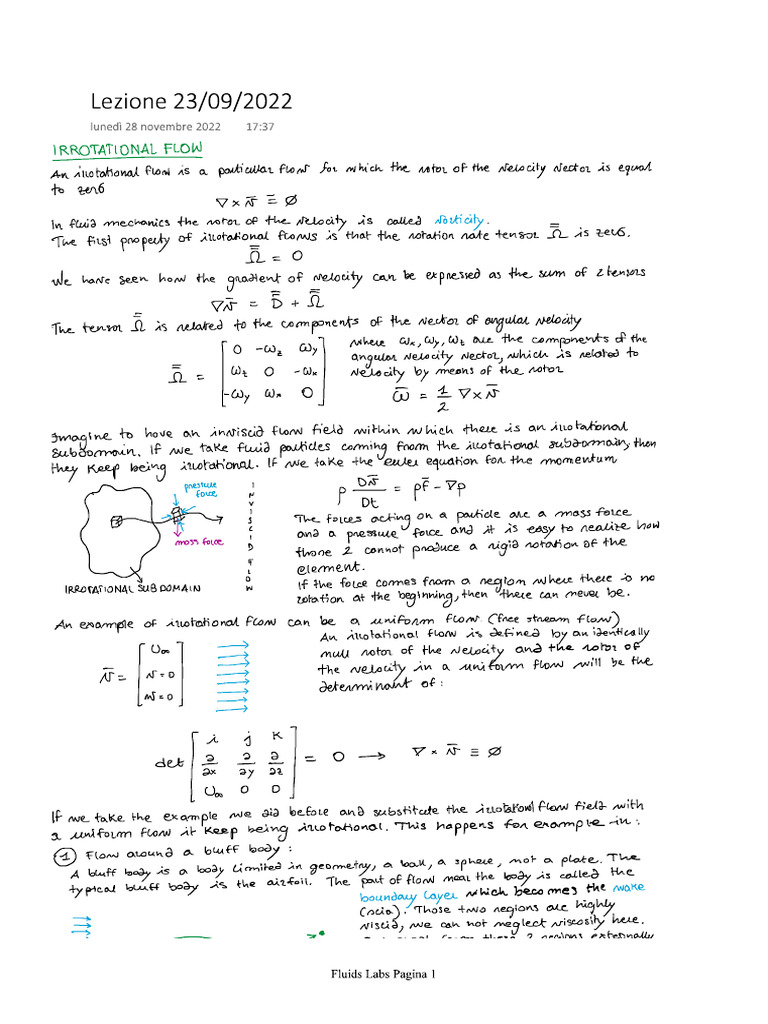 Lezione 23/09/2022
lunedì 28 novembre 2022 17:37
IRROTATIONAL FLOW
An irrotational flow is a particular flow for which the rotor of the velocity vector is equal
to zero
∇ × v̄ ≡ ∅
In fluid mechanics the rotor of the velocity is called vorticity.
The first property of irrotational flows is that the rotation rate tensor Ω̿ is zero.
Ω̿ = 0
We have seen how the gradient of velocity can be expressed as the sum of 2 tensors
∇v̄ = D̿ + Ω̿
The tensor Ω̿ is related to the components of the vector of angular velocity
Ω̿ = [ 0 -ωz ωy
ωz 0 -ωx
-ωy ωx 0 ]
where ωx, ωy, ωz are the components of the
angular velocity vector, which is related to
velocity by means of the rotor
ω̄ = 1/2 ∇ × v̄
Imagine to have an inviscid flow field within which there is an irrotational
subdomain. If we take fluid particles coming from the irrotational subdomain, then
they keep being irrotational. If we take the euler equation for the momentum
pressure
force
mass force
INVISCID FLOW
IRROTATIONAL SUBDOMAIN
ρ Dv̄/Dt = ρf̄ - ∇p
The forces acting on a particle are a mass force
and a pressure force and it is easy to realize how
those 2 cannot produce a rigid rotation of the
element.
If the force comes from a region where there is no
rotation at the beginning, then there can never be.
An example of irrotational flow can be a uniform flow (free stream flow)
v̄ = [ U∞
v = 0
w = 0 ]
An irrotational flow is defined by an identically
null rotor of the velocity and the rotor of
the velocity in a uniform flow will be the
determinant of:
det [ i j k
∂/∂x ∂/∂y ∂/∂z
U∞ 0 0 ] = 0 → ∇ × v̄ ≡ ∅
If we take the example we did before and substitute the irrotational flow field with
a uniform flow it keep being irrotational. This happens for example in:
① Flow around a bluff body:
A bluff body is a body limited in geometry, a ball, a sphere, not a plate. The
typical bluff body is the airfoil. The part of flow near the body is called the
boundary layer which becomes the wake
(scia). Those two regions are highly
viscid, we can not neglect viscosity here.
Fluids Labs Pagina 1